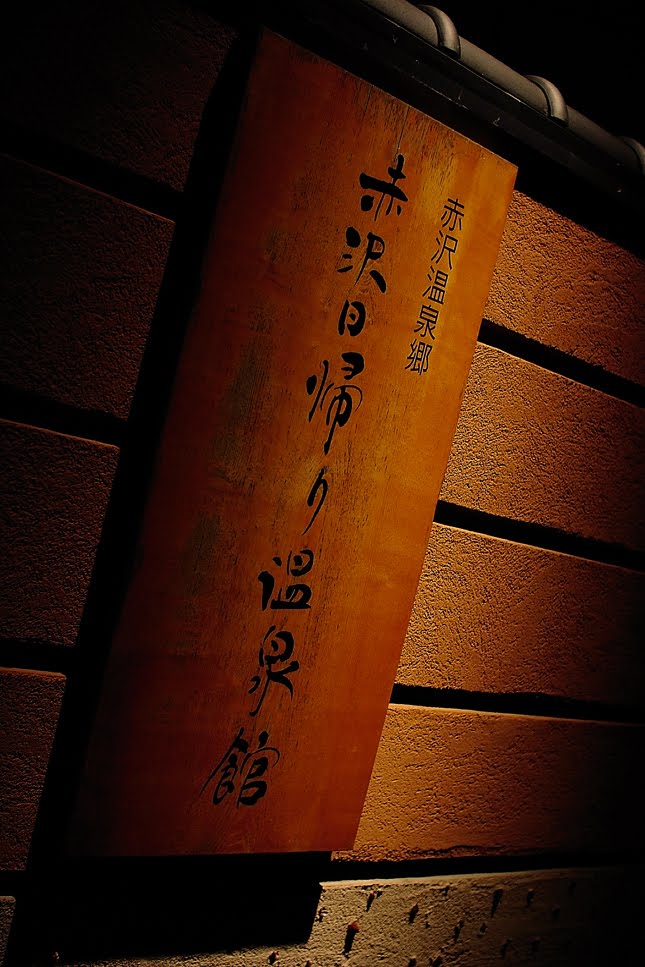 赤沢温泉郷
赤沢日帰り温泉館